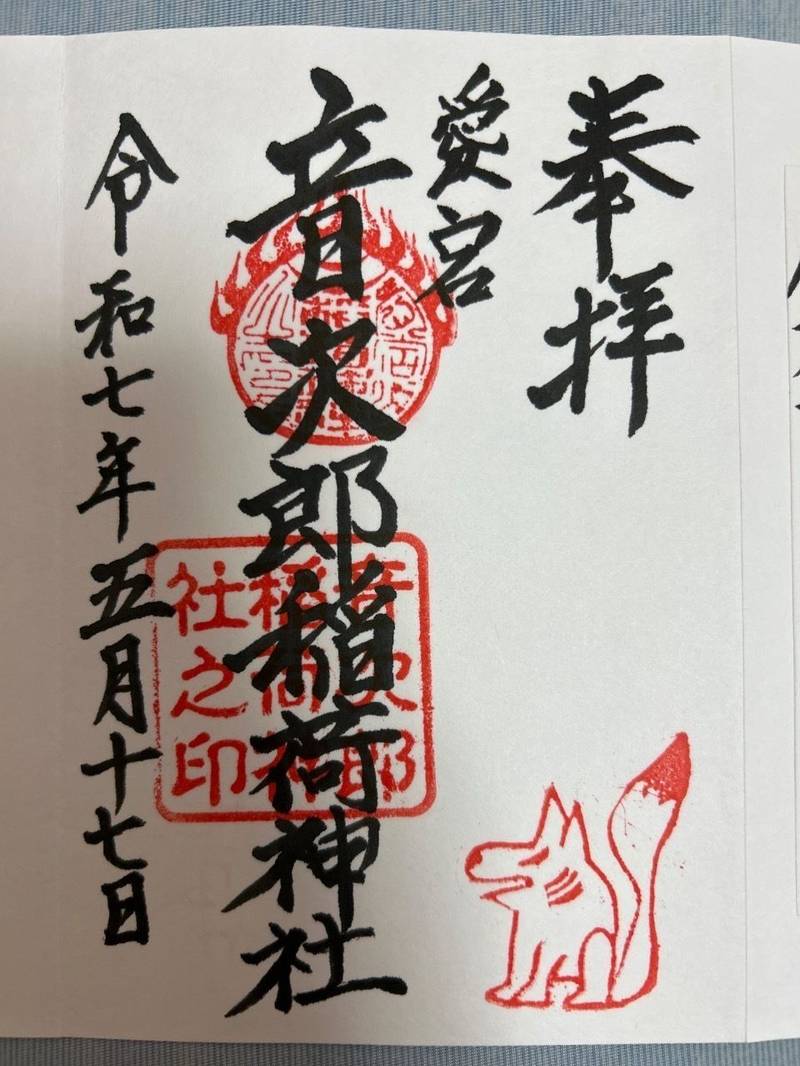 奉拝
愛宕
音次郎稲荷神社
令和七年五月十七日
音次郎
稲荷神
社之印